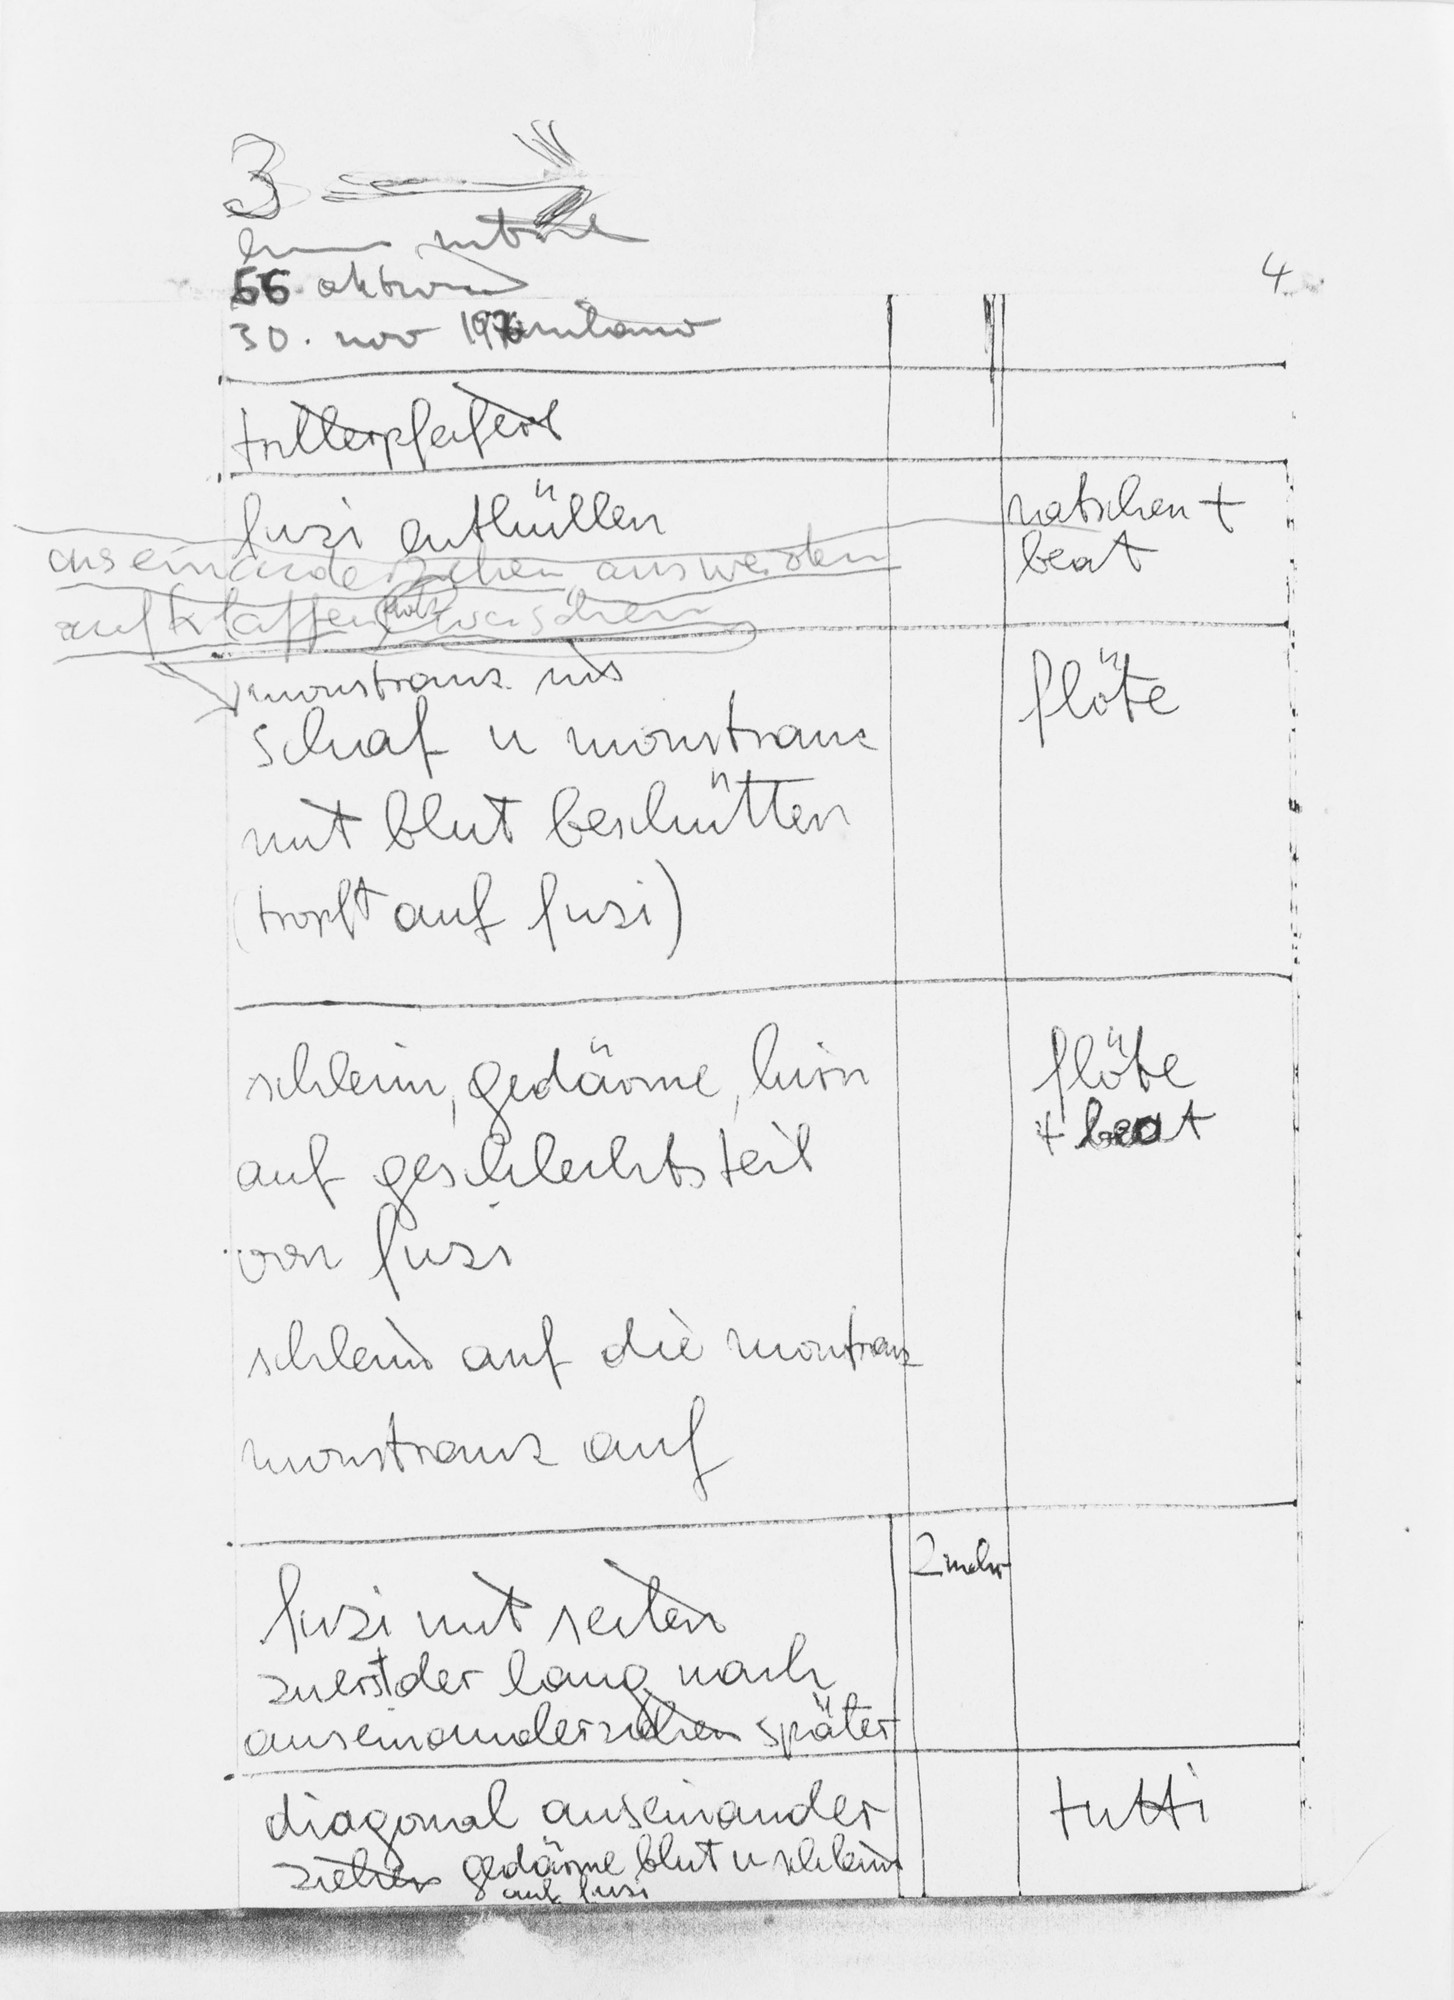 3
4
56. aktion
30. nov 197 milano
trillerpfeifen
fuzi enthüllen
ratschen +
beat
auseinanderziehen ausweiden
aufklaffen waschen
monstranz
schaf u monstranz
flöte
mit blut beschütten
(tropft auf fuzi)
schleim, gedärme, hirn
flöte
+ beat
auf geschlechtsteil
von fuzi
schleim auf die monstranz
monstranz auf
fuzi mit seilen
zuerst der lang nach
auseinanderziehen später
diagonal auseinander
tutti
ziehen gedärme blut u schleim
auf fuzi